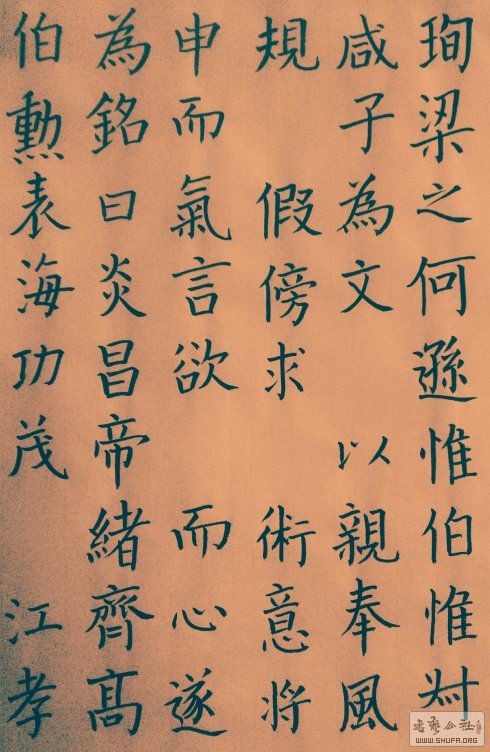 珣梁之何遜惟伯惟叔
咸子為文 以親奉風
規 假傍求 術意將
申而氣言欲 而心遂
為銘曰炎昌帝緒齊髙
伯勲表海功茂 江孝
書法公社
WWW.SHUFA.ORG